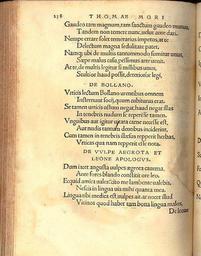 238 THOMAE MORI
Gaudeo tam magnum, tam sanctum gaudeo munus,
Tandem non temere nunc, uti ante dari.
Nempe errare solet temerarius impetus, at
Delectum magna sedulitate patet,
Namque ubi de multis tantummodo sumitur unus,
Sæpe malus casu pessimus arte venit.
At de multis legitur si millibus unus,
Seu
DE BOLLANO.
Vrticis lectum Bollano urentibus omnem
Insternunt socij, quum cubiturus erat.
Se tamen urticis ustum negat, haud negat illas
In tenebris nudum se reperisse tamen.
Vnguibus aut igitur
Aut nudis tantum dentibus
Cum tamen in tenebris illas repperit herbas,
Vrticas qua nam repperit ille nota.
DE VVLPE AEGROTA ET
LEONE APOLOGVS.
Dum iacet angusta uulpes ægrota cauerna,
Ante fores blando constitit ore leo.
Ecquid amica uales? cito me lambente ualebis,
Nescis in lingua uis mihi quanta mea.
Lingua tibi medica est uulpes ait, at nocet illud
Vicinos quod habet tam bona lingua malos.
De leone